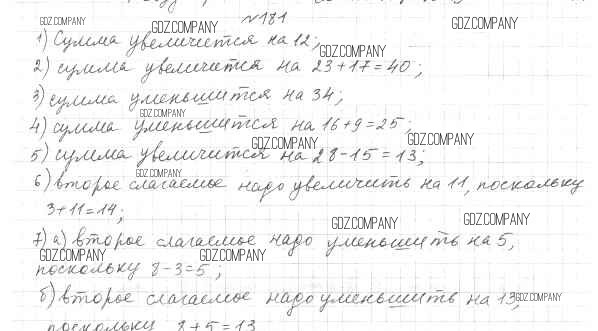 №181
1) Сумма увеличится на 12;
2) сумма увеличится на 23+17=40;
3) сумма уменьшится на 34;
4) сумма уменьшится на 16+9=25;
5) сумма увеличится на 28-15=13;
6) второе слагаемое надо увеличить на 11, поскольку
3+11=14;
7) а) второе слагаемое надо уменьшить на 5,
поскольку 8-3=5;
б) второе слагаемое надо уменьшить на 13,
поскольку 8+5=13
GDZ.COMPANY
GDZ.COMPANY
GDZ.COMPANY
GDZ.COMPANY
GDZ.COMPANY
GDZ.COMPANY
GDZ.COMPANY
GDZ.COMPANY
GDZ.COMPANY
GDZ.COMPANY
GDZ.COMPANY
GDZ.COMPANY
GDZ.COMPANY